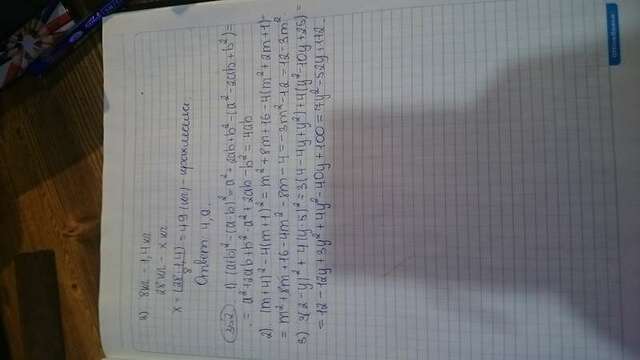 4) 8кг – 1,4 кг
28 кг – x кг
x = (28·1,4)/8 = 49 (кг) – крахмала.
Ответ: 4,9.
302 1) (a+b)² - (a-b)² = a² + 2ab + b² - (a² - 2ab + b²) =
= a² + 2ab + b² - a² + 2ab - b² = 4ab
2) (m+4)² - 4(m+1)² = m² + 8m + 16 - 4(m² + 2m + 1) =
= m² + 8m + 16 - 4m² - 8m - 4 = -3m² + 12 = 12 - 3m²
3) 3(2-y)² + 4(y-5)² = 3(4 - 4y + y²) + 4(y² - 10y + 25) =
= 12 - 12y + 3y² + 4y² - 40y + 100 = 7y² - 52y + 112.